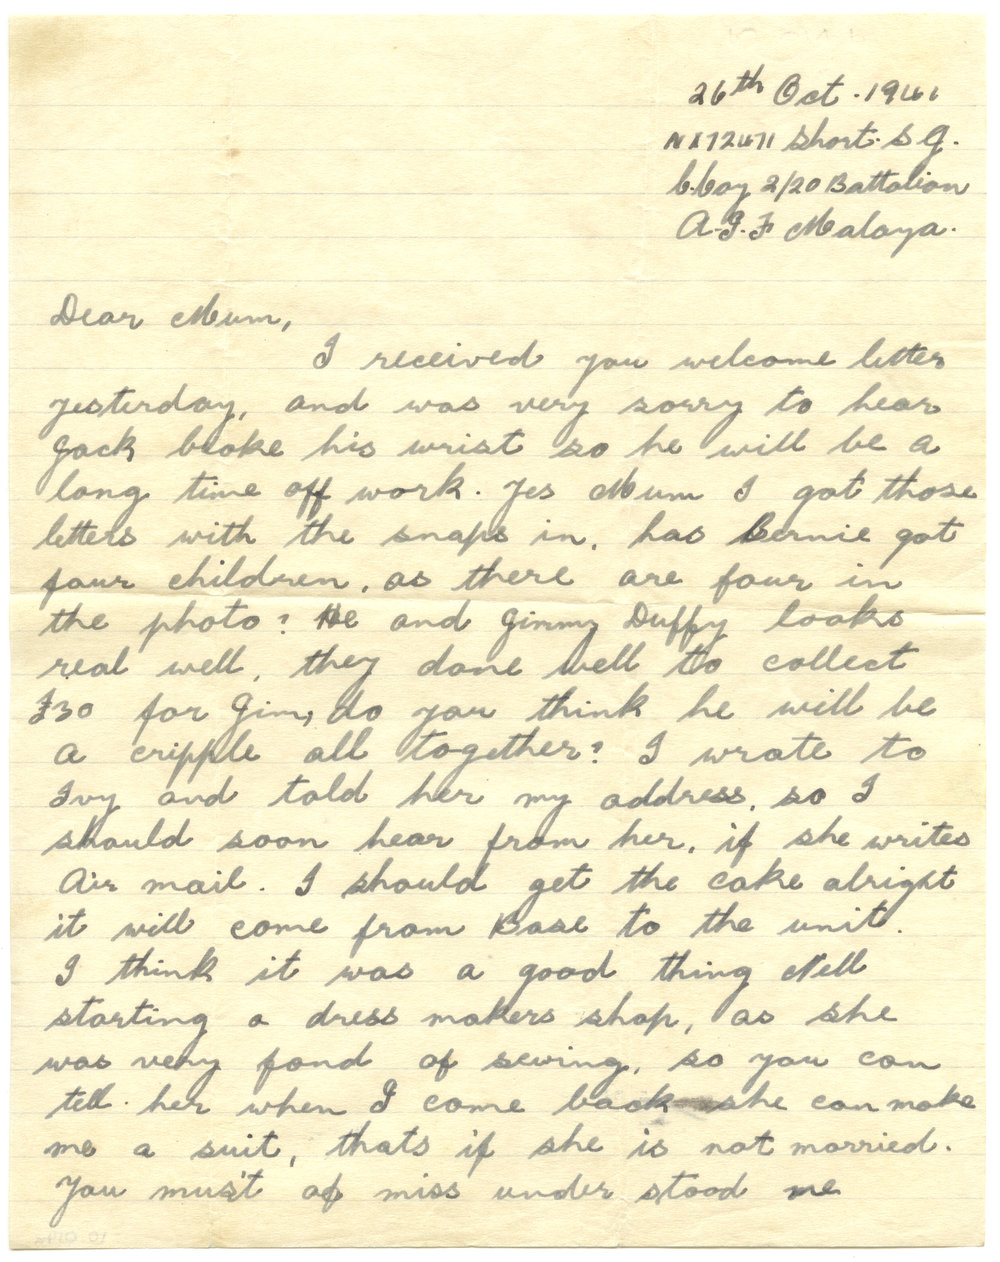 26th Oct. 1941
NX72471 Short. S G.
C.Coy 2/20 Battalion
A.I.F Malaya.
Dear Mum,
I received you welcome letter
yesterday, and was very sorry to hear
Jack broke his wrist so he will be a
long time off work. Yes Mum I got those
letters with the snaps in, has Bernie got
four children, as there are four in
the photo? He and Jimmy Duffy looks
real well, they done well to collect
£30 for Jim, do you think he will be
a cripple all together? I wrote to
Ivy and told her my address, so I
should soon hear from her, if she writes
Air mail. I should get the cake alright
it will come from Base to the unit.
I think it was a good thing Nell
starting a dress makers shop, as she
was very fond of sewing, so you can
tell her when I come back she can make
me a suit, thats if she is not married.
You must of miss under stood me